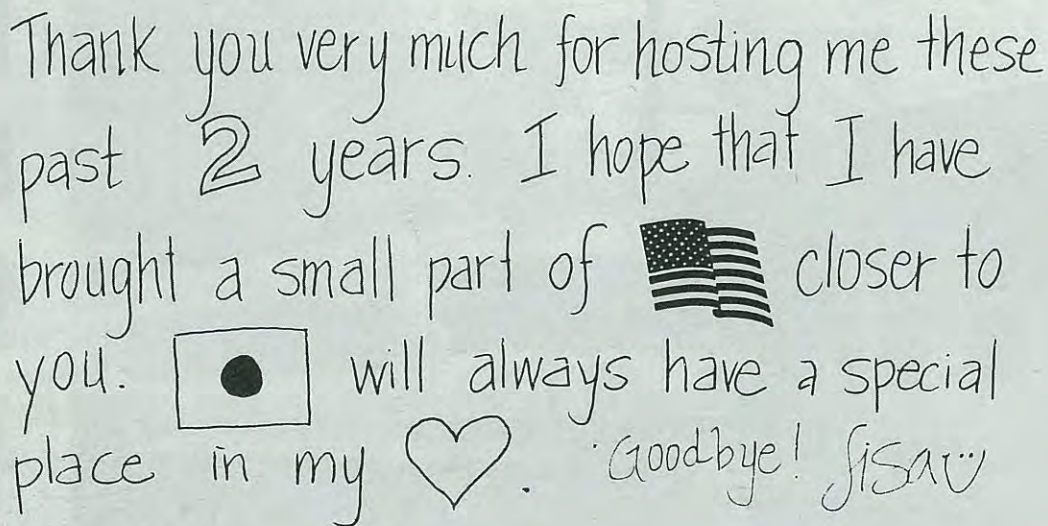 Thank you very much for hosting me these
past 2 years. I hope that I have
brought a small part of closer to
you. will always have a special
place in my . Goodbye! Lisa